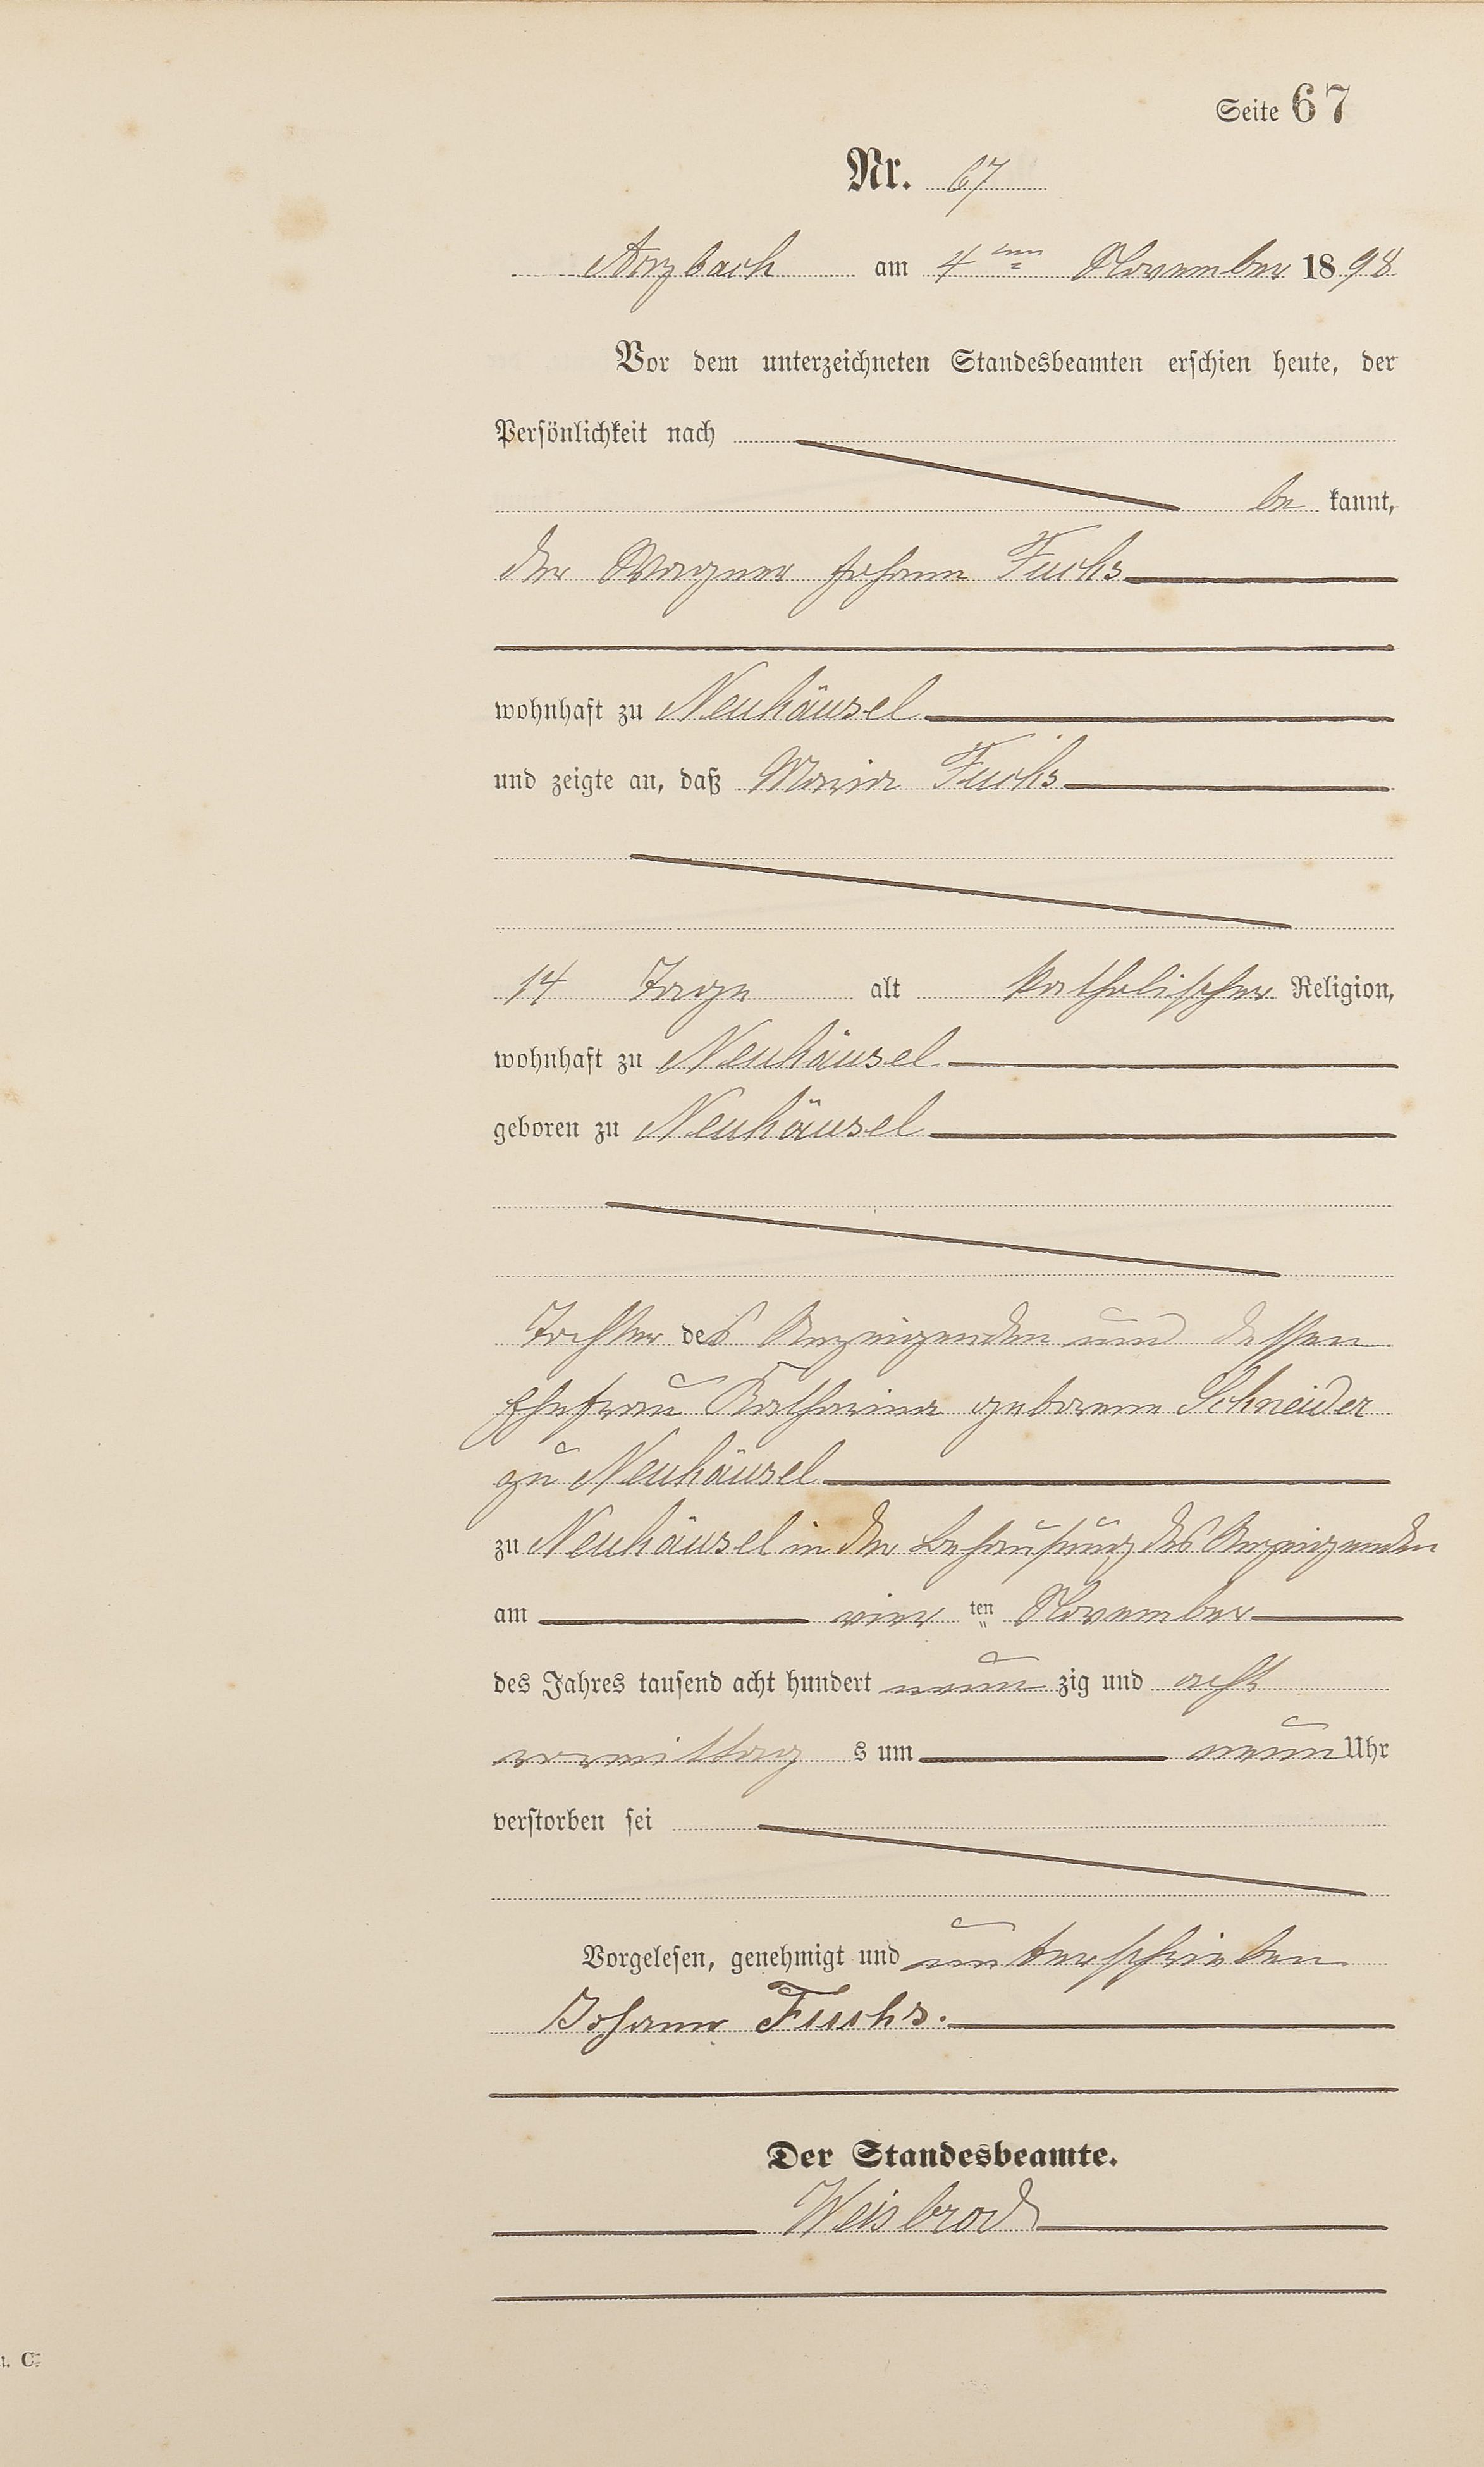 Seite 67
Nr. 67
Arzbach am 4ten November 1898
Vor dem unterzeichneten Standesbeamten erschien heute, der
Persönlichkeit nach
be kannt,
der Wagner Johann Fuchs
wohnhaft zu Neuhäusel
und zeigte an, daß Maria Fuchs
14 Tage alt katholischer Religion,
wohnhaft zu Neuhäusel
geboren zu Neuhäusel
Tochter des Anzeigenden und dessen
Ehefrau Katharina geborene Schneider
zu Neuhäusel
zu Neuhäusel in der Behausung des Anzeigenden
am vier ten November
des Jahres tausend acht hundert neun zig und acht
vormittag s um neun Uhr
verstorben sei
Vorgelesen, genehmigt und unterschrieben
Johann Fuchs.
Der Standesbeamte.
Weisbrod